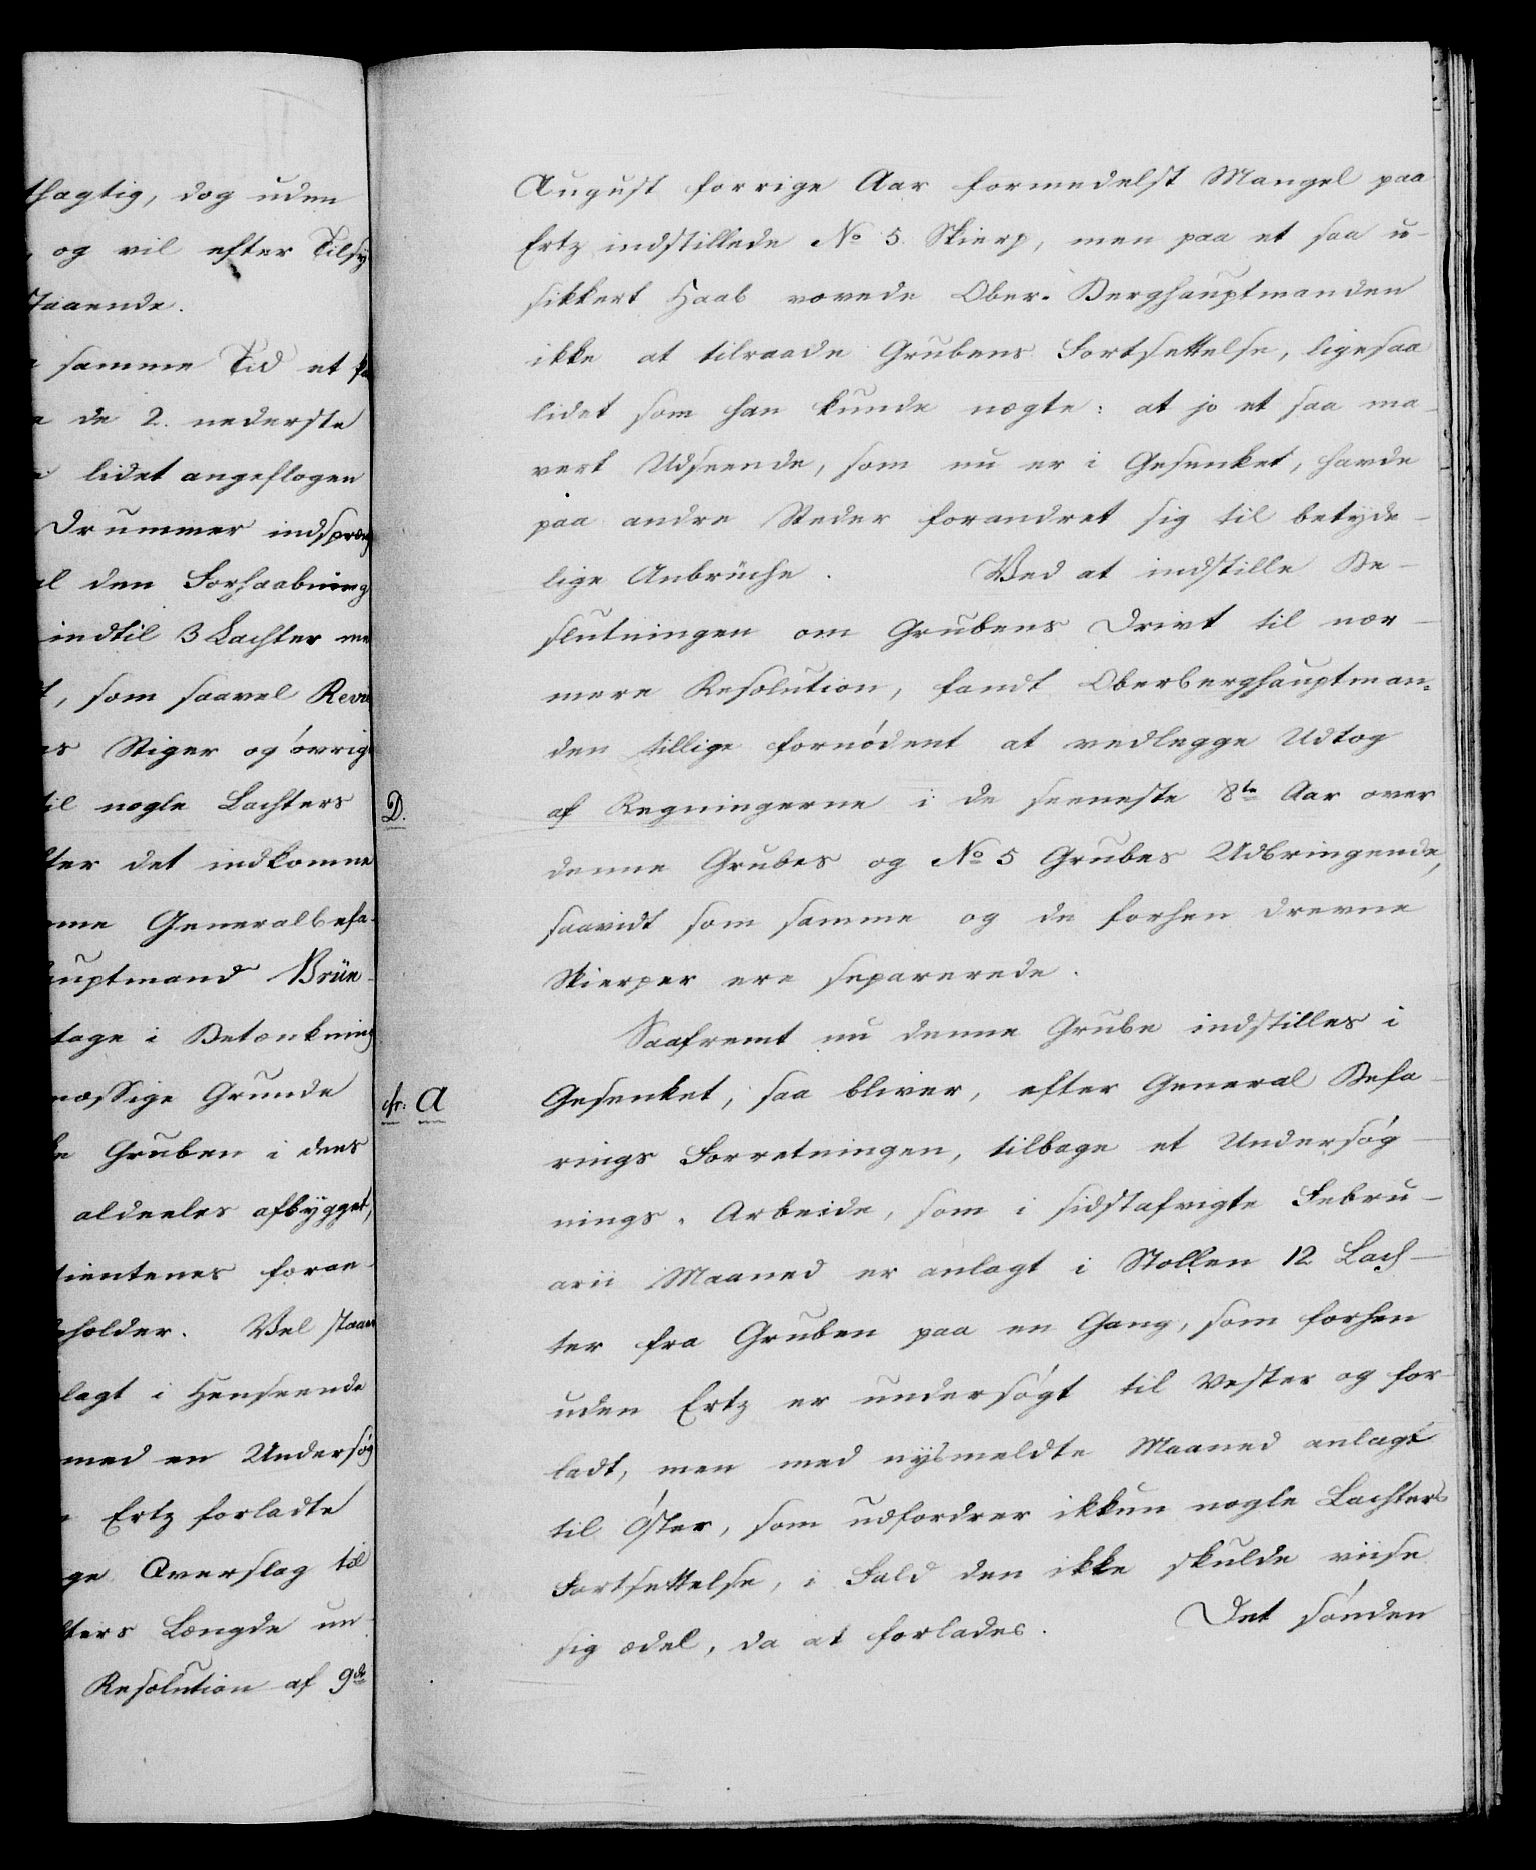 thagtig, dog uden
og vil efter Tilsy
staaende.
samme Tid et
de 2. nederste
lidet angeflogen
Drummer indspræng
den Forhaabning
indtil 3 Lachter me
, som saavel Revie
Stiger og øvrig
til nogle Lachters
det indkomne
Generalbefa-
auptmand Brün-
tage i Betænkning
mæssige Grunde
Gruben i dens
aldeeles afbygget,
foran-
holder. Vel staaer
lagt i Henseende
med en Undersøg
Ertz forladte
Overslag til
Længde un-
Resolution af 9de
August forrige Aar formedelst Mangel paa
Ertz indstillede No 5. Skierp, men paa et saa u-
sikkert Haab vovede Ober-Berghauptmanden
ikke at tilraade Grubens Fortsettelse, ligesaa
lidet som han kunde nægte: at jo et saa ma-
vert Udseende, som nu er i Gesenket, havde
paa andre Steder forandret sig til betyde-
lige Anbrüche. Ved at indstille Be-
slutningen om Grubens Drivt til nær-
mere Resolution, fandt Oberberghauptman-
den tillige fornødent at vedlegge Udtog
D. af Regningerne i de seeneste 8te Aar over
denne Grubes og No 5 Grubes Udbringende,
saavidt som samme og de forhen drevne
Skierper ere separerede.
Saafremt nu denne Grube indstilles i
cfr: A Gesenket, saa bliver, efter General Befa-
rings Forretningen, tilbage et Undersøg-
nings-Arbeide, som i sidstafvigte Febru-
arii Maaned er anlagt i Stollen 12 Lach-
ter fra Gruben paa en Gang, som forhen
uden Ertz er undersøgt til Vester og for-
ladt, men med nysmeldte Maaned anlagt
til Øster, som udfordrer ikkun nogle Lachters
Fortsettelse, i Fald den ikke skulde viise
sig ædel, da at forlades. Det sønden